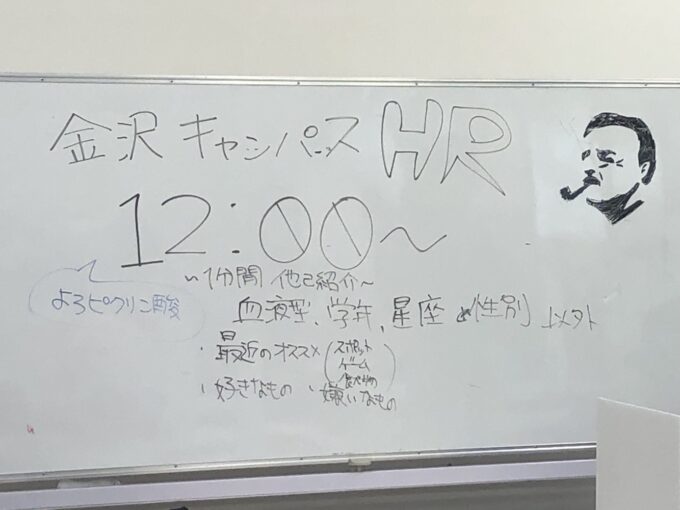 金沢キャンパス HR
12:00〜
〜1分間 他己紹介〜
よろピクリン酸
血液型、学年、星座と性別 以外
・最近のオススメ(スポット
ゲーム
食べ物)
・好きなもの ・嫌いなもの